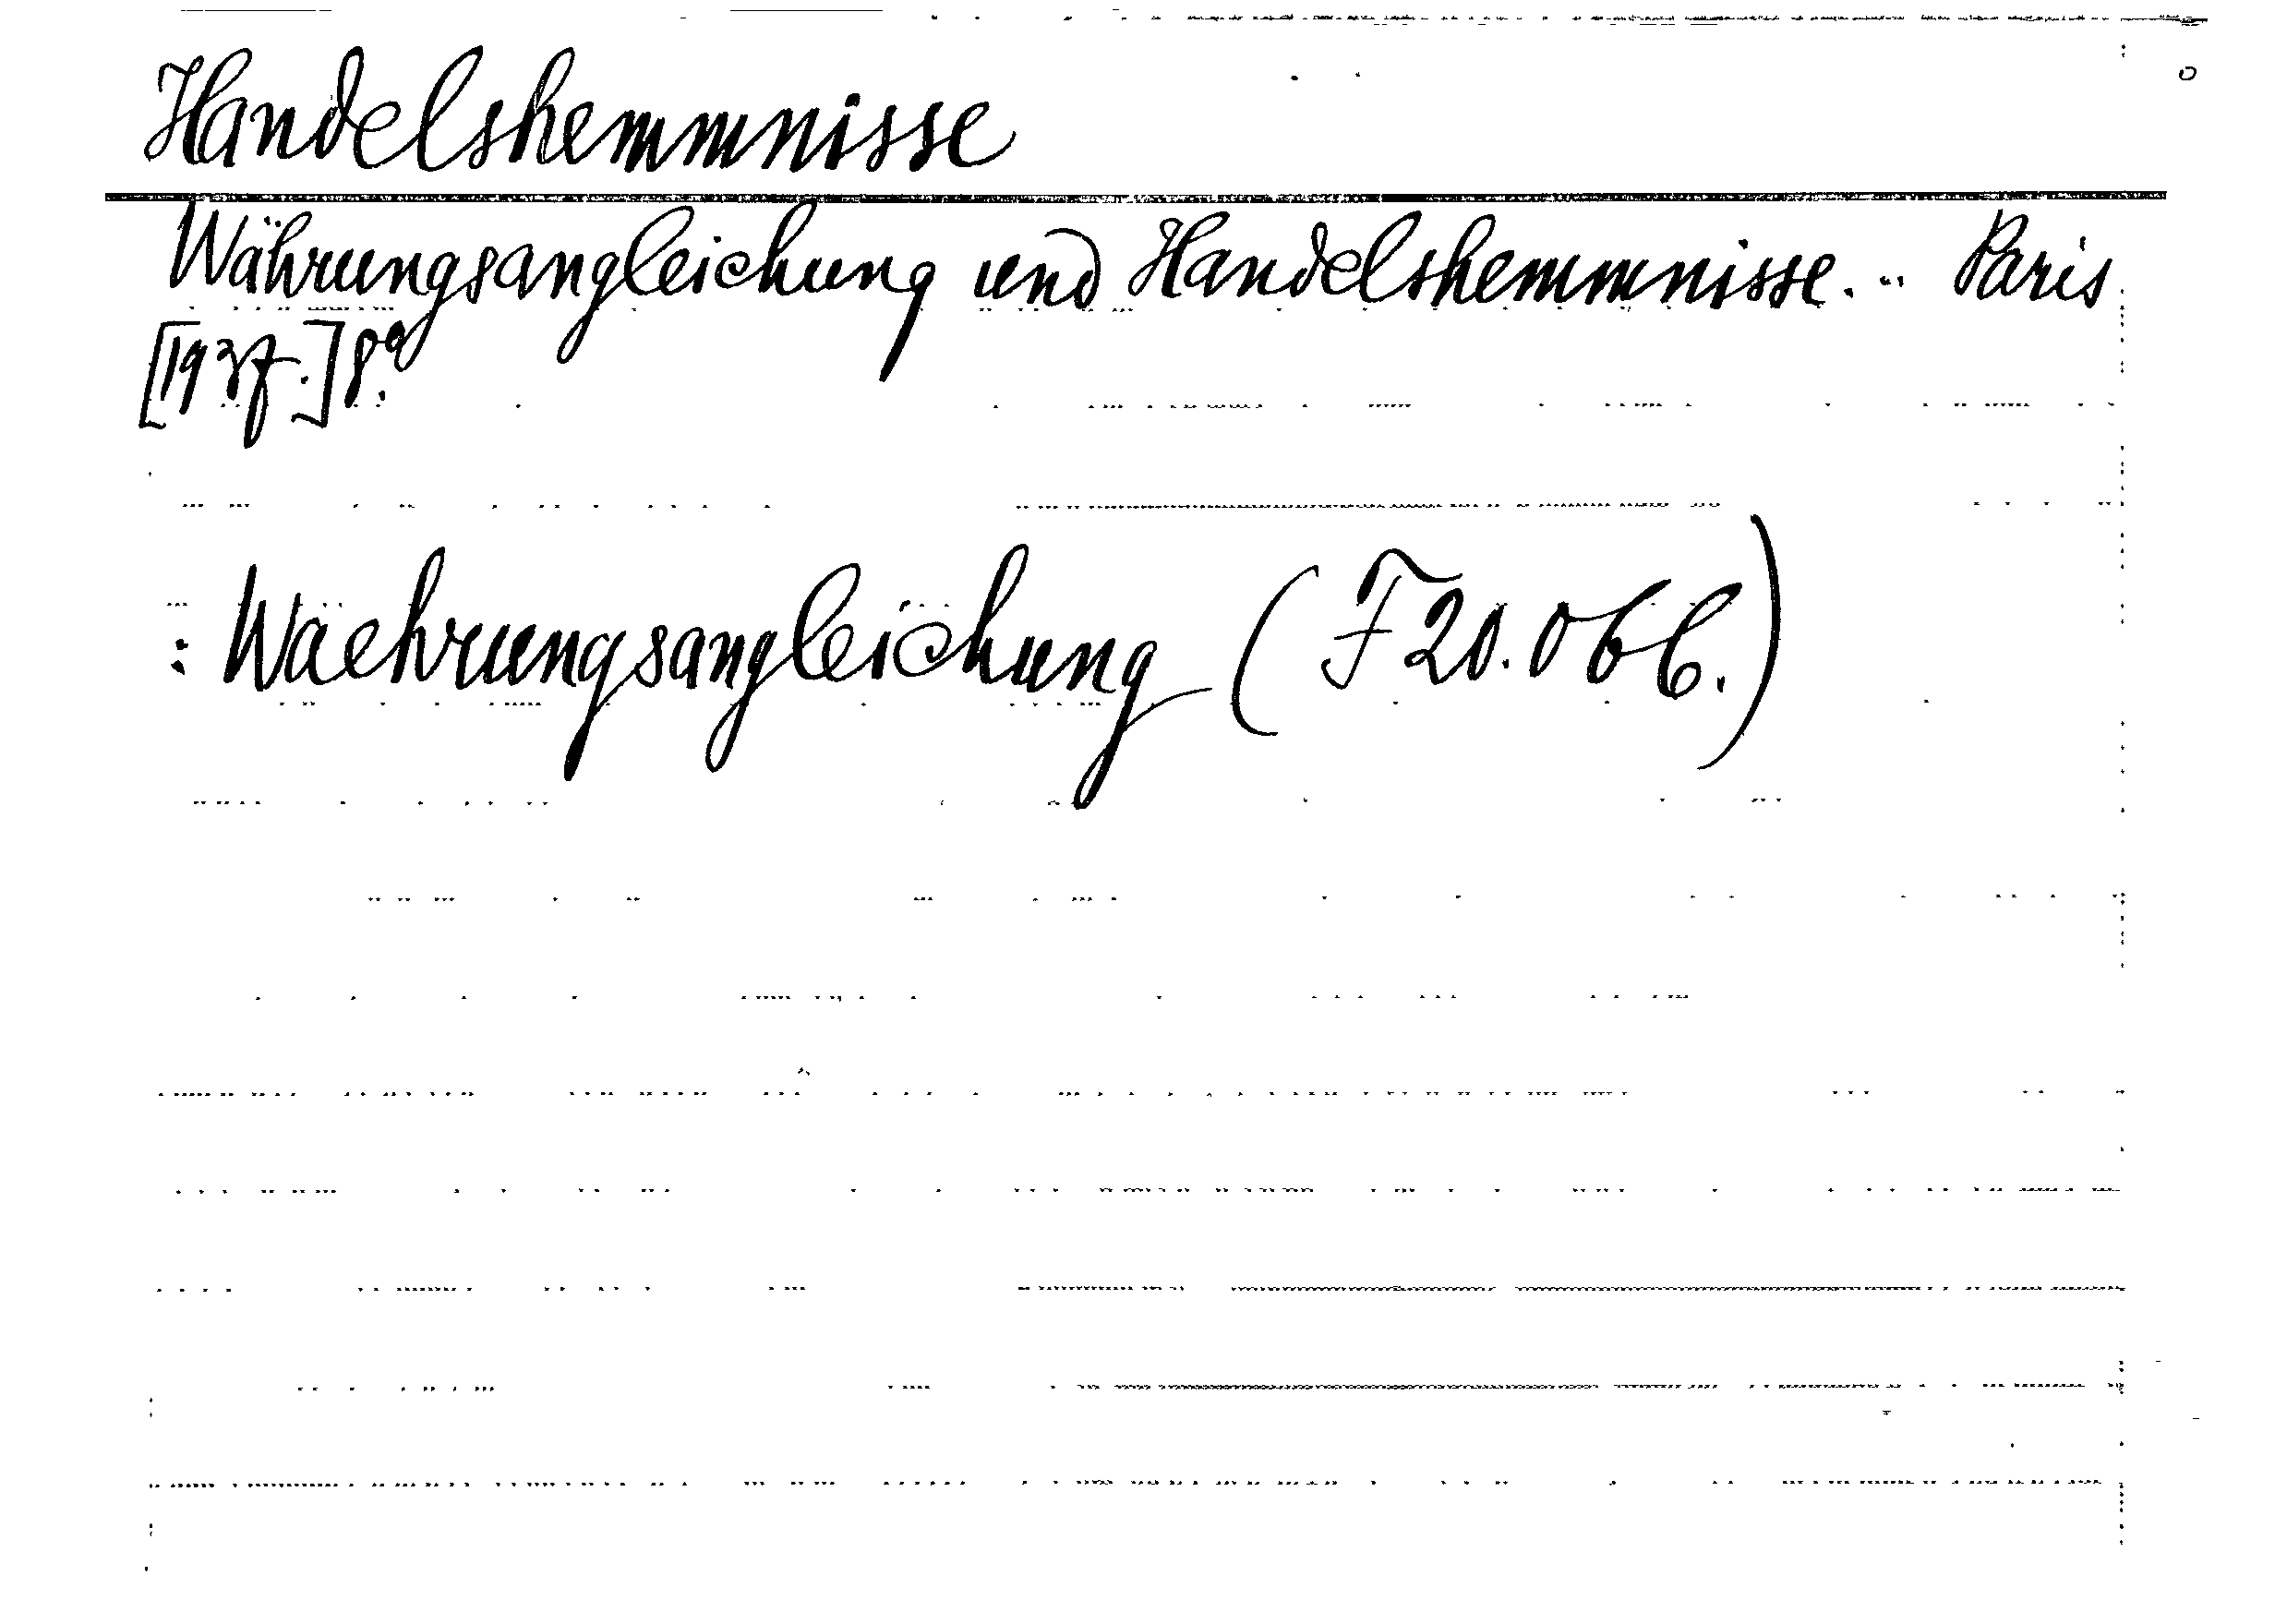 Handelshemmnisse
Währungsangleichung und Handelshemmnisse. - Paris
[1937.] 8.º
: Waehrungsangleichung (F 20.066.)